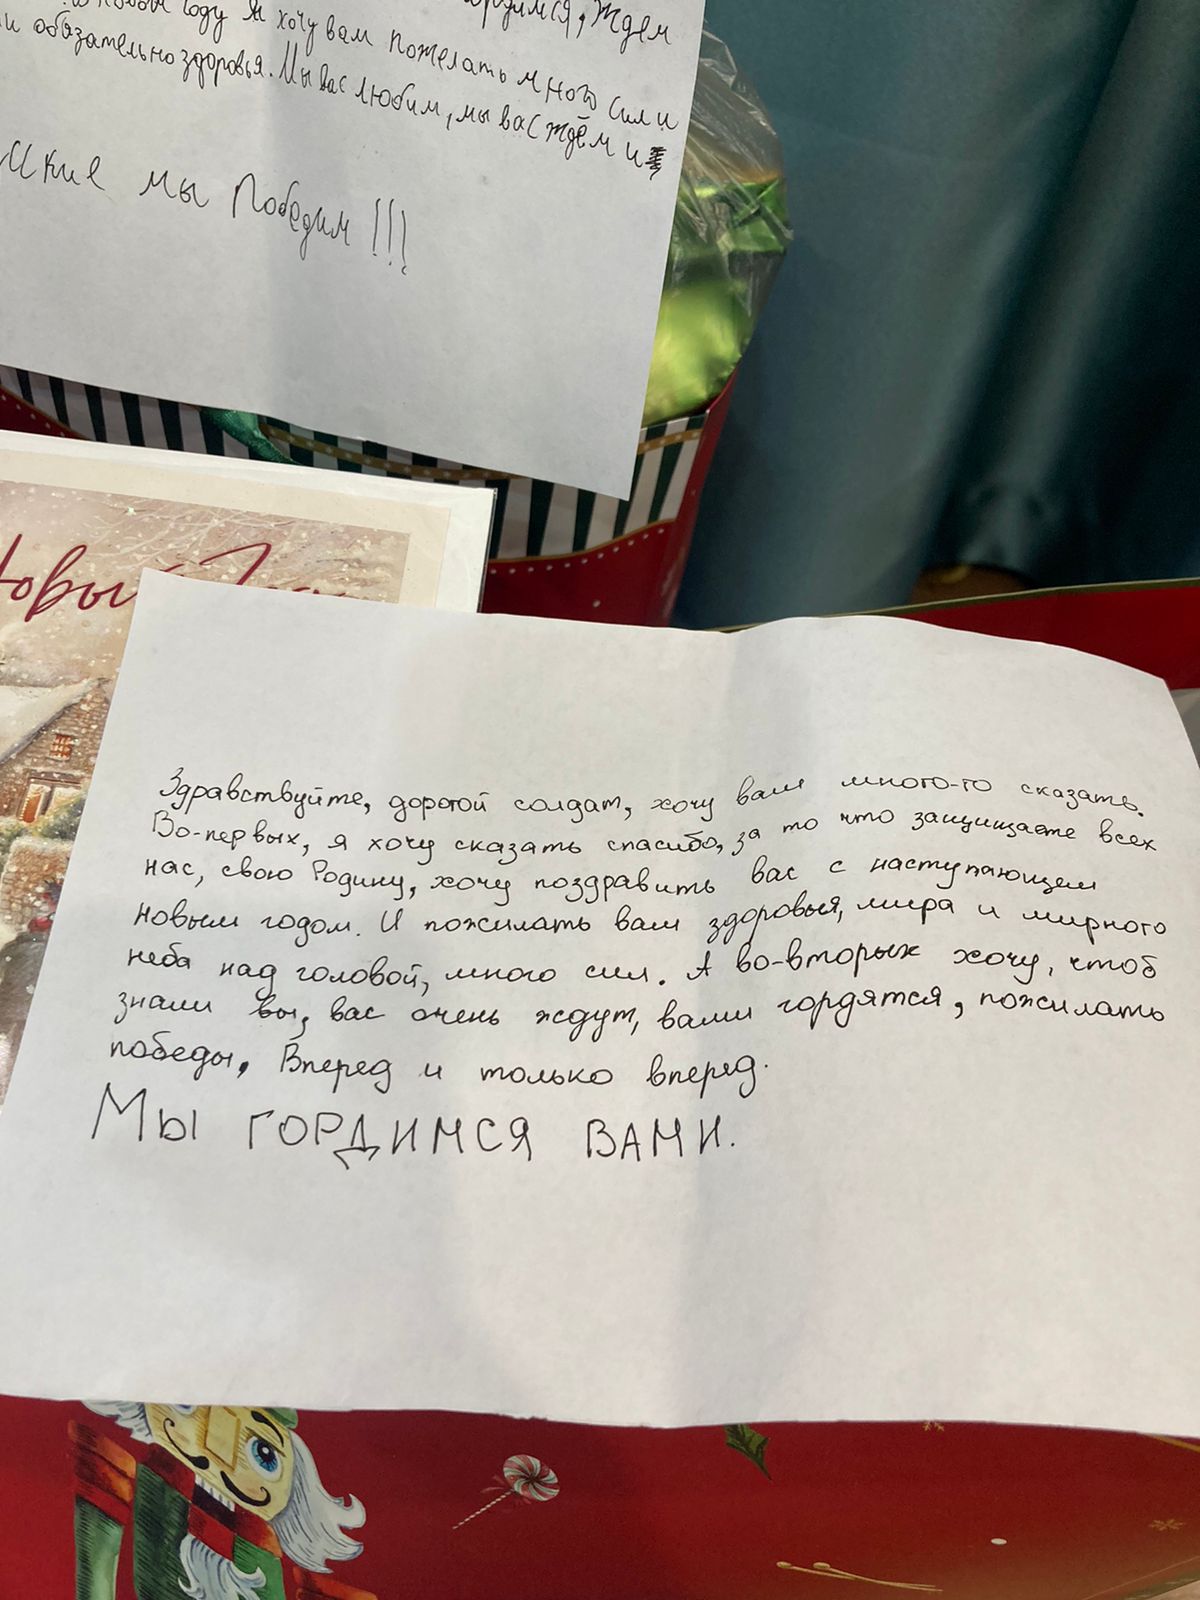 гордимся, ждем
Новом году Я хочу вам пожелать много сил и
и обязательно здоровья. Мы вас любим, мы вас ждём и
мы Победим!!!
Новый
Здравствуйте, дорогой солдат, хочу вам много-го сказать.
Во-первых, я хочу сказать спасибо, за то что защищаете всех
нас, свою Родину, хочу поздравить вас с наступающем
новым годом. И пожилать вам здоровья, мира и мирного
неба над головой, много сил. А во-вторых хочу, чтоб
знали вы, вас очень ждут, вами гордятся, пожилать
победы, Вперед и только вперед.
Мы ГОРДИМСЯ ВАМИ.